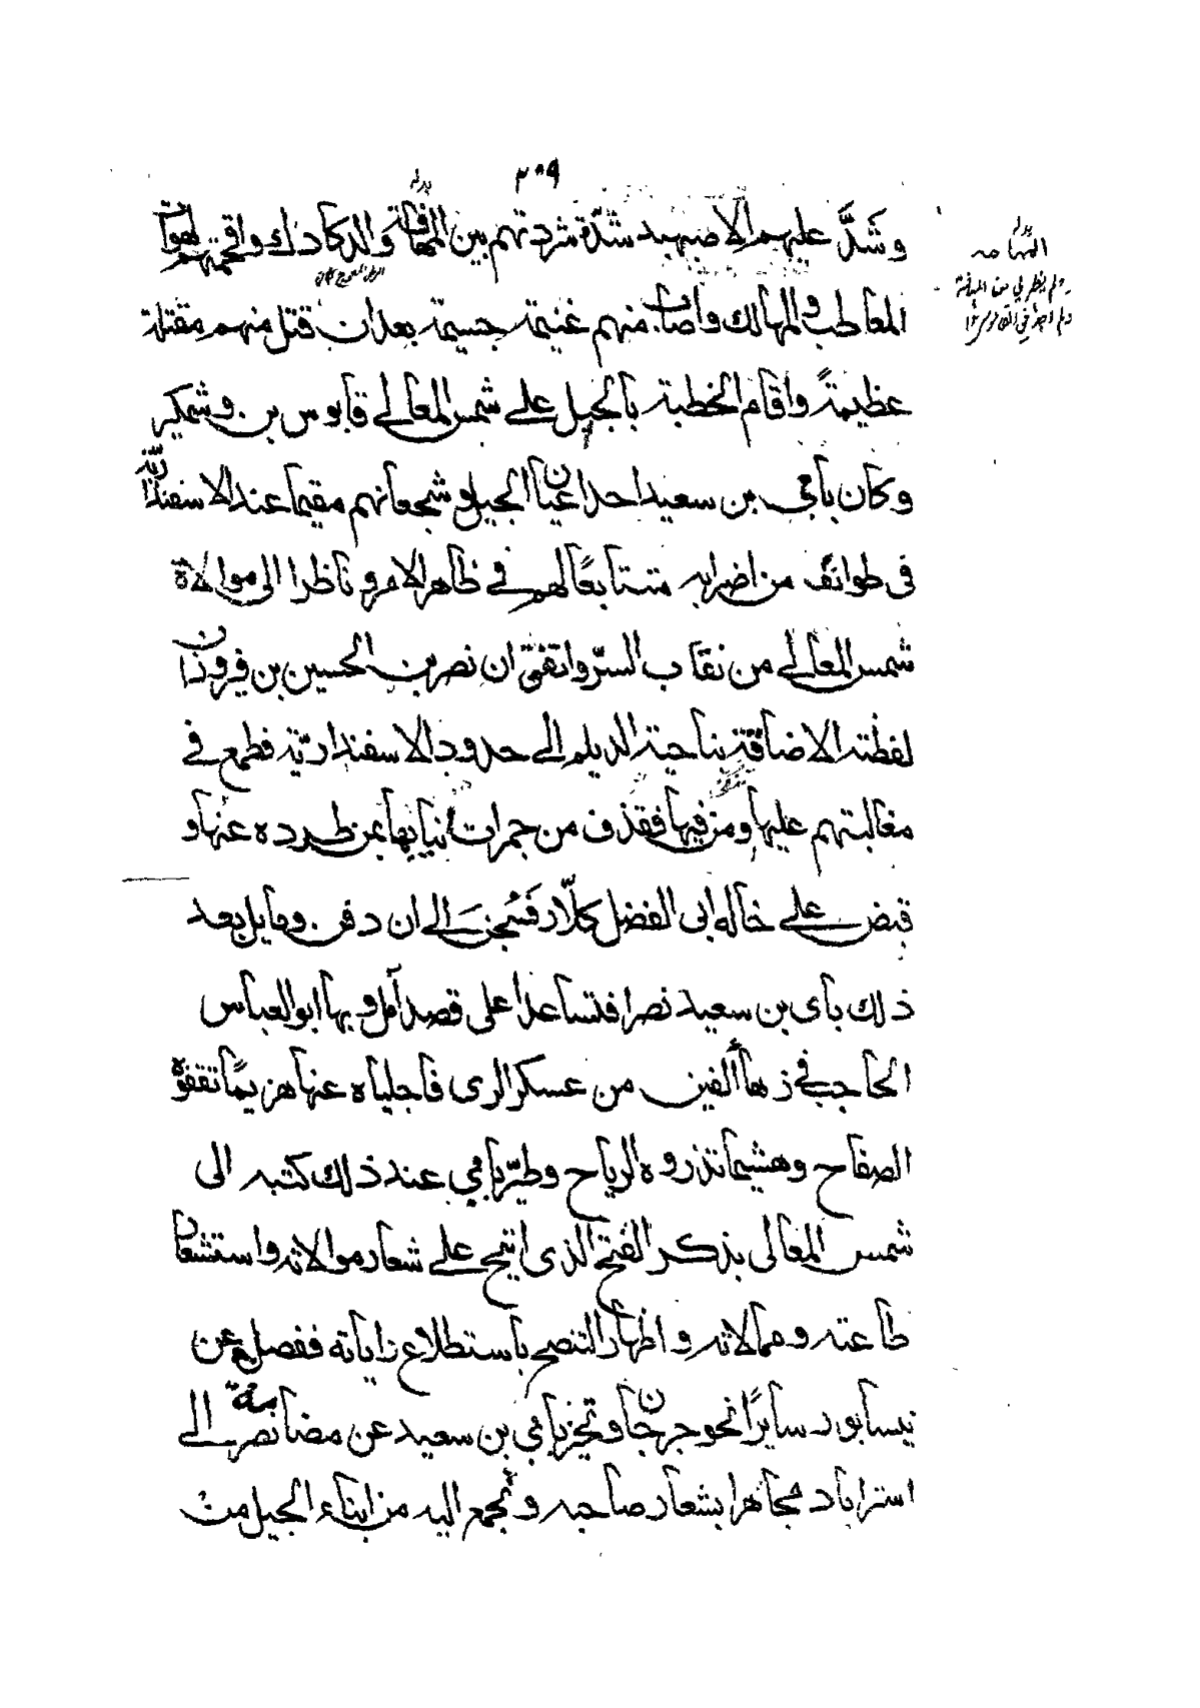 ٣٥٩
وشَدَّ عليهم الاصبهبد شدّة شردتهم بين المهافة والدكادك واقحمتهم لهوات
المعاطب والمهالك واصاب منهم غنيمة جسيمة بعد ان قتل منهم مقتلة
عظيمةً واقام الخطبة بالجيل على شمس المعالي قابوس بن وشمكير
وكان باتي بن سعيد احد اعيان الجيل وشجعانهم مقيما عند الاسفندارية
في طوائف من اضرابه متتابعًا لهم في ظاهر الامر وناظرا الى موالاة
شمس المعالي من نقاب السرّ واتفق ان نصر بن الحسين بن فيروزان
لفظته الاضاقة بناحية الديلم الى حدود الاسفنداريّة فطمع في
مغالبتهم عليها ومن فيها فقذف من جمرات انيابها بمن طرده عنها و
قبض على خاله ابي الفضل كلّار فسُجن الى ان دفن ومايل بعد
ذلك باى بن سعيد نصرا فتساعدا على قصد آمل وبها ابو العباس
الحاجب في زهاء ألفين من عسكر الرى فاجلياه عنها هزيمًا تقفوه
الصفاح وهشيما تذروه الرياح وطيّر باتي عند ذلك كتبه الى
شمس المعالى بذكر الفتح الذى اتيح على شعار موالاته واستشعار
طاعته وممالاته واظهار التنصح باستطلاع راياته ففصل عن
نيسابور سايرًا نحو جرجان وتحيز باتي بن سعيد عن مضامة نصر الى
استراباد مجاهرا بشعار صاحبه وتجمع اليه من ابناء الجيل من